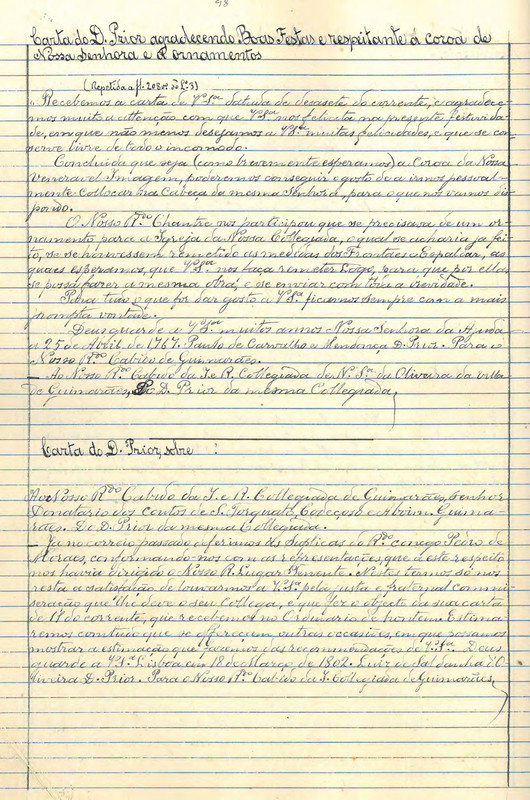 98
Carta do D. Prior agradecendo Boas Festas e respeitante á coroa de
Nossa Senhora e Ornamentos
(Repetida a fl. 208 vº do Lº 3)
"Recebemos a carta de V. Sª datada de desasete do corrente, e agradece-
mos muito a attenção com que V. Sª nos felicita na presente festivida-
de, em que não menos desejamos a V. Sª muitas felicidades, e que se con-
serve livre de todo o incomodo.
Concluida que seja (como brevemente esperamos) a Coroa da Nossa
Veneravel Imagem, poderemos conseguir o gosto de a irmos pessoal-
mente collocar na Cabeça da mesma Senhora, para o que nos vamos dis-
pondo.
O Nosso R.do Chantre nos partisipou que se precisava de um or-
namento para a Igreja da Nossa Collegiada, o qual se acharia já fei-
to, se se houvessem remetido as medidas dos Frontaes e Espaldar, as
quaes esperamos, que V. Sª nos faça remeter logo, para que por ellas
se possa fazer a mesma obra, e se enviar com toda a brevidade.
Para tudo o que for dar gosto a V. Sª ficamos sempre com a mais
prompta vontade.
Deus guarde a V. Sª muitos annos Nossa Senhora da Ajuda
a 25 de Abril de 1767. Paulo de Carvalho e Mendonça D. Prior. Para o
Nosso R.do Cabido de Guimarães.
— Ao Nosso R.do Cabido da I. e R. Collegiada de N. Sª da Oliveira da villa
de Guimarães, Do D. Prior da mesma Collegiada,
Carta do D. Prior, sobre :
Ao Nosso R.do Cabido da I. e R. Collegiada de Guimarães, Senhor
Donatario dos contos de S. Torquato, Codeçoso e Aboim. Guima-
rães. Do D. Prior da mesma Collegiada.
— Já no correio passado deferimos ás Suplicas do R.do conego Pedro de
Moraes, conformando-nos com as representações que a este respeito
nos havia dirigido o Nosso R. Lugar Tenente. Nestes termos só nos
resta a satisfação de louvarmos a V. Sª pela justa e fraternal commi-
seração que lhe deve o seu Collega, e que fez o objecto da sua carta
de 11 do corrente, que recebemos no Ordinario de hontem. Estima-
remos comtudo que se offereciem outras occasiões, em que possamos
mostrar a estimação que fazemos das recommendações de V. Sª. Deus
guarde a V. Sª Lisboa em 18 de Março, de 1802. Luiz de Saldanha d'O-
liveira D. Prior. Para o Nosso R.do Cabido da I. Collegiada de Guimarães,